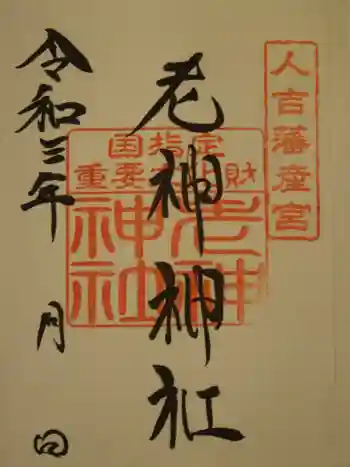 人吉藩産宮
老神神社
国指定
重要文化財
老神
神社
令和三年 月 日